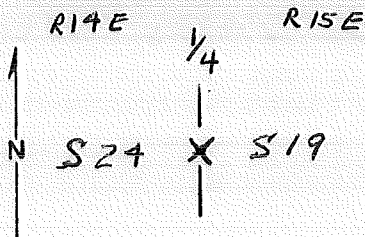 R14E R15E
1/4
N S24 X S19